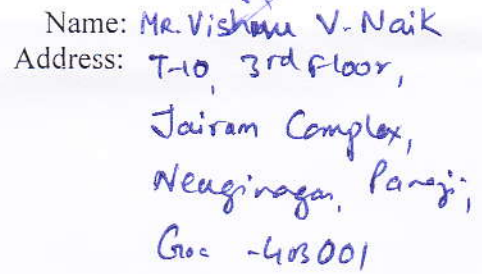 Name: Mr. Vishnu V. Naik
Address: T-10, 3rd Floor,
Jairam Complex,
Neuginagar, Panaji,
Goa - 403001